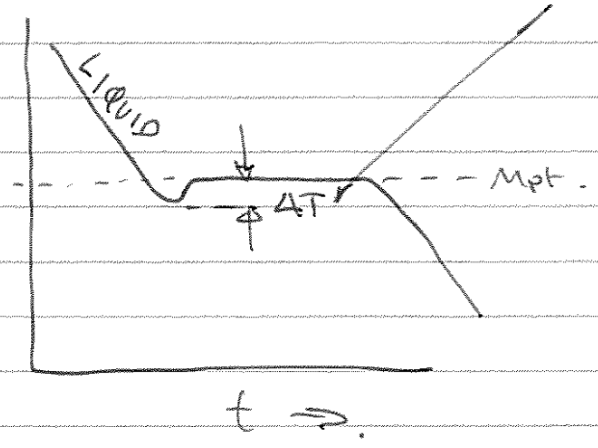 LIQUID
ΔT
Mpt.
t →.